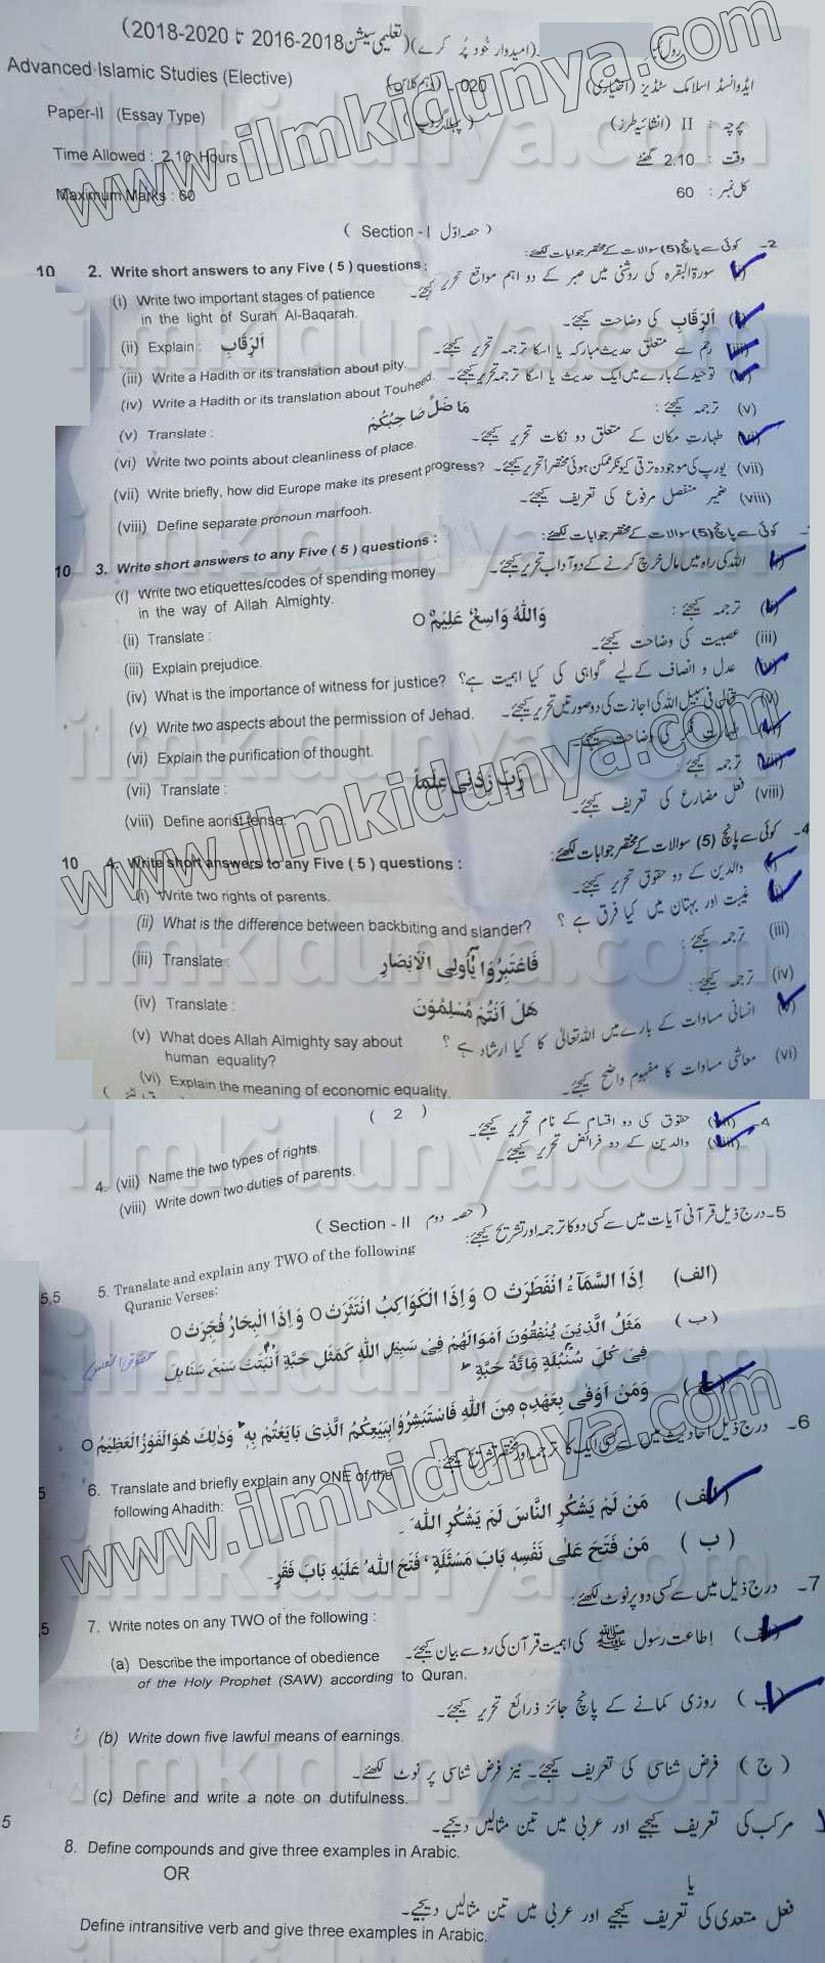 (تعلیمی سیشن 2018-2016 تا 2020-2018)
رول نمبر (امیدوار خود پُر کرے)
Advanced Islamic Studies (Elective)
020 - (دہم کلاس)
ایڈوانسڈ اسلامک سٹڈیز (اختیاری)
Paper-II (Essay Type)
(پہلا گروپ)
پرچہ : II (انشائیہ طرز)
Time Allowed : 2.10 Hours
وقت : 2.10 گھنٹے
Maximum Marks : 60
کل نمبر : 60
( Section - I حصہ اوّل )
2- کوئی سے پانچ (5) سوالات کے مختصر جوابات لکھئے:
10 2. Write short answers to any Five ( 5 ) questions :
(i) سورۃ البقرہ کی روشنی میں صبر کے دو اہم مواقع تحریر کیجئے۔
(i) Write two important stages of patience
in the light of Surah Al-Baqarah.
(ii) اَلرِّقَابِ کی وضاحت کیجئے۔
(ii) Explain : اَلرِّقَابِ
(iii) رحم سے متعلق حدیث مبارکہ یا اسکا ترجمہ تحریر کیجئے۔
(iii) Write a Hadith or its translation about pity.
(iv) توحید کے بارے میں ایک حدیث یا اسکا ترجمہ تحریر کیجئے۔
(iv) Write a Hadith or its translation about Touheed.
(v) ترجمہ کیجئے :
(v) Translate : مَا ضَلَّ صَاحِبُكُمْ
(vi) طہارتِ مکان کے متعلق دو نکات تحریر کیجئے۔
(vi) Write two points about cleanliness of place.
(vii) یورپ کی موجودہ ترقی کیونکر ممکن ہوئی مختصراً تحریر کیجئے۔
(vii) Write briefly, how did Europe make its present progress?
(viii) ضمیر منفصل مرفوع کی تعریف کیجئے۔
(viii) Define separate pronoun marfooh.
کوئی سے پانچ (5) سوالات کے مختصر جوابات لکھئے:
10 3. Write short answers to any Five ( 5 ) questions :
(i) اللہ کی راہ میں مال خرچ کرنے کے دو آداب تحریر کیجئے۔
(i) Write two etiquettes/codes of spending money
in the way of Allah Almighty.
(ii) ترجمہ کیجئے :
(ii) Translate : وَاللّٰهُ وَاسِعٌ عَلِيْمٌ ○
(iii) عصبیت کی وضاحت کیجئے۔
(iii) Explain prejudice.
(iv) عدل و انصاف کے لیے گواہی کی کیا اہمیت ہے؟
(iv) What is the importance of witness for justice?
(v) قتال فی سبیل اللہ کی اجازت کی دو صورتیں تحریر کیجئے۔
(v) Write two aspects about the permission of Jehad.
(vi) طہارتِ فکر کی وضاحت کیجئے۔
(vi) Explain the purification of thought.
(vii) ترجمہ کیجئے :
(vii) Translate : رَبِّ زِدْنِىْ عِلْمًا
(viii) فعل مضارع کی تعریف کیجئے۔
(viii) Define aorist tense.
4- کوئی سے پانچ (5) سوالات کے مختصر جوابات لکھئے:
10 4. Write short answers to any Five ( 5 ) questions :
(i) والدین کے دو حقوق تحریر کیجئے۔
(i) Write two rights of parents.
(ii) غیبت اور بہتان میں کیا فرق ہے ؟
(ii) What is the difference between backbiting and slander?
(iii) ترجمہ کیجئے :
(iii) Translate : فَاعْتَبِرُوْا يٰٓاُولِى الْاَبْصَارِ
(iv) ترجمہ کیجئے :
(iv) Translate : هَلْ اَنْتُمْ مُسْلِمُوْنَ
(v) انسانی مساوات کے بارے میں اللہ تعالیٰ کا کیا ارشاد ہے ؟
(v) What does Allah Almighty say about
human equality?
(vi) معاشی مساوات کا مفہوم واضح کیجئے۔
(vi) Explain the meaning of economic equality.
( 2 )
4- (vii) حقوق کی دو اقسام کے نام تحریر کیجئے۔
4. (vii) Name the two types of rights.
(viii) والدین کے دو فرائض تحریر کیجئے۔
(viii) Write down two duties of parents.
( Section - II حصہ دوم )
5- درج ذیل قرآنی آیات میں سے کسی دو کا ترجمہ اور تشریح کیجئے:
5,5 5. Translate and explain any TWO of the following
Quranic Verses:
(الف) اِذَا السَّمَآءُ انْفَطَرَتْ ○ وَاِذَا الْكَوَاكِبُ انْتَثَرَتْ ○ وَاِذَا الْبِحَارُ فُجِّرَتْ ○
(ب) مَثَلُ الَّذِيْنَ يُنْفِقُوْنَ اَمْوَالَهُمْ فِىْ سَبِيْلِ اللّٰهِ كَمَثَلِ حَبَّةٍ اَنْبَتَتْ سَبْعَ سَنَابِلَ
فِىْ كُلِّ سُنْبُلَةٍ مِّائَةُ حَبَّةٍ
(ج) وَمَنْ اَوْفٰى بِعَهْدِهٖ مِنَ اللّٰهِ فَاسْتَبْشِرُوْا بِبَيْعِكُمُ الَّذِىْ بَايَعْتُمْ بِهٖ وَذٰلِكَ هُوَ الْفَوْزُ الْعَظِيْمُ ○
6- درج ذیل احادیث میں سے کسی ایک کا ترجمہ اور مختصر تشریح کیجئے:
5 6. Translate and briefly explain any ONE of the
following Ahadith:
(الف) مَنْ لَّمْ يَشْكُرِ النَّاسَ لَمْ يَشْكُرِ اللّٰهَ ۔
(ب) مَنْ فَتَحَ عَلٰى نَفْسِهٖ بَابَ مَسْئَلَةٍ، فَتَحَ اللّٰهُ عَلَيْهِ بَابَ فَقْرٍ۔
7- درج ذیل میں سے کسی دو پر نوٹ لکھئے:
,5 7. Write notes on any TWO of the following :
(الف) اِطاعت رسول ﷺ کی اہمیت قرآن کی رو سے بیان کیجئے۔
(a) Describe the importance of obedience
of the Holy Prophet (SAW) according to Quran.
(ب) روزی کمانے کے پانچ جائز ذرائع تحریر کیجئے۔
(b) Write down five lawful means of earnings.
(ج) فرض شناسی کی تعریف کیجئے۔ نیز فرض شناسی پر نوٹ لکھئے۔
(c) Define and write a note on dutifulness.
مرکب کی تعریف کیجیے اور عربی میں تین مثالیں دیجیے۔
5 8. Define compounds and give three examples in Arabic.
یا
OR
فعل متعدی کی تعریف کیجیے اور عربی میں تین مثالیں دیجیے۔
Define intransitive verb and give three examples in Arabic.
www.ilmkidunya.com
ilmkidunya.com